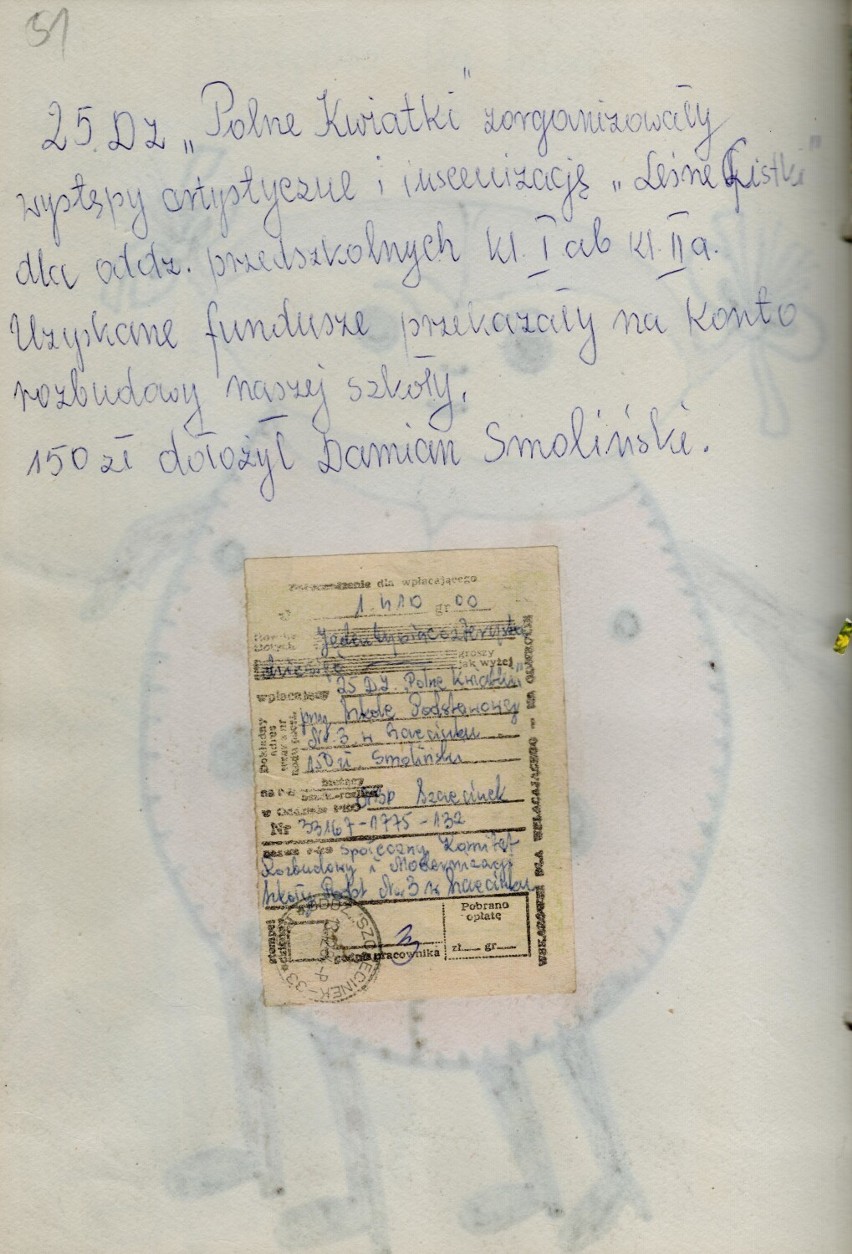 51
25. DZ „Polne Kwiatki" zorganizowały
występy artystyczne i inscenizację „Leśne Listki"
dla oddz. przedszkolnych kl. I ab kl. II a.
Uzyskane fundusze przekazały na konto
rozbudowy naszej szkoły.
150 zł dołożył Damian Smoliński.
dla wpłacającego
zł 1.410 gr 00
Jeden tysiąc czterysta
dziesięć groszy jak wyżej
wpłacający 25 DZ. „Polne Kwiatki"
przy Szkole Podstawowej
Nr. 3 w Szczecinku
150 zł Smoliński
Dokładny adres
Szczecinek
w Oddziale PKO
Nr 33167-1775-132
Społeczny Komitet
Rozbudowy i Modernizacji
Szkoły Podst Nr 3 w Szczecinku
stempel
podpis pracownika
Pobrano opłatę
zł gr
SZCZECINEK
DLA WPŁACAJĄCEGO — NA ODWROCIE